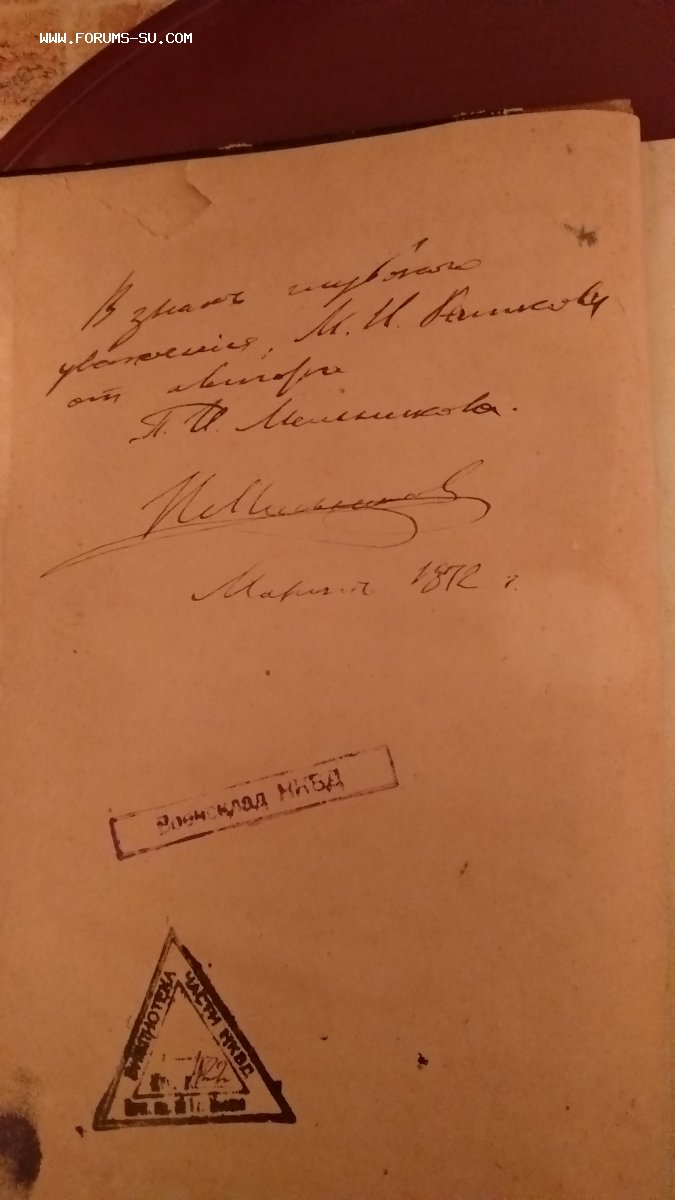 WWW.FORUMS-SU.COM
В знакъ глубокаго
уваженія, М. И.
от автора
П. И. Мельникова.
Мельников
Мартъ 1872 г.
Военсклад НКВД
БИБЛИОТЕКА ЧАСТИ НКВД